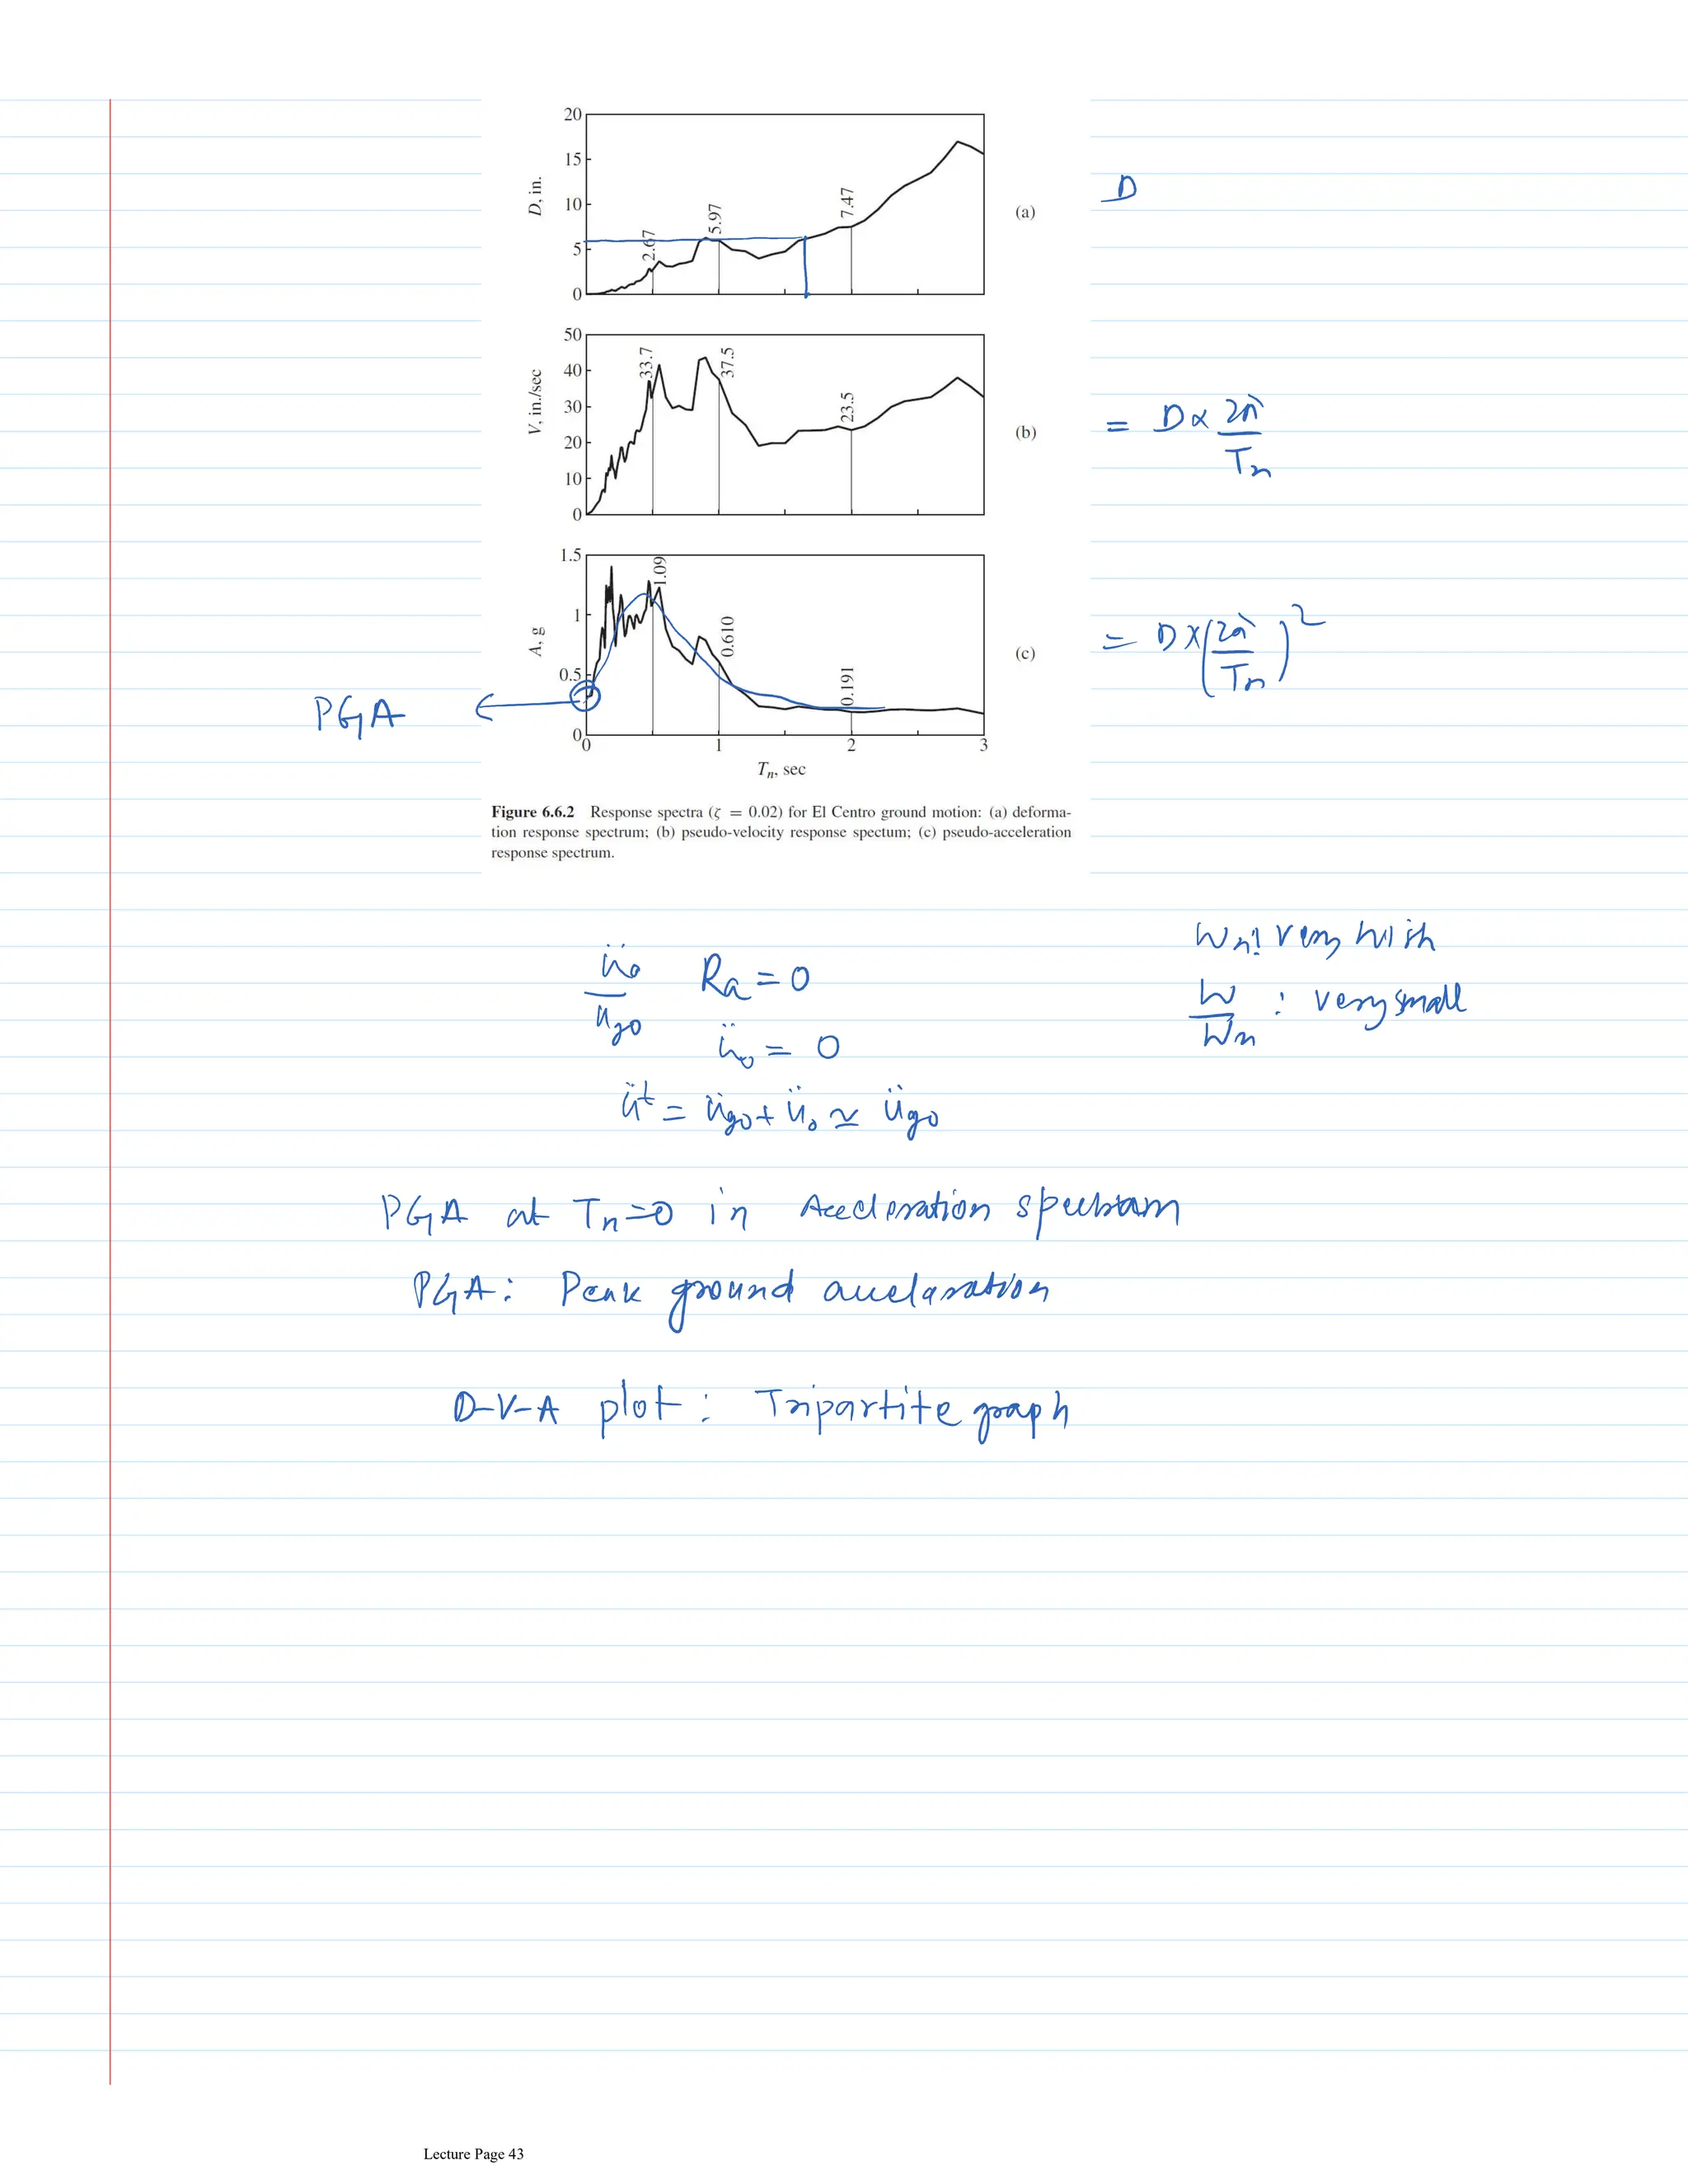 20
15
10
5
0
D, in.
2.67
5.97
7.47
(a)
D
50
40
30
20
10
0
V, in./sec
33.7
37.5
23.5
(b)
= D × 2π / Tn
1.5
1
0.5
0
A, g
1.09
0.610
0.191
(c)
= D × (2π / Tn)²
PGA
0 1 2 3
Tn, sec
Figure 6.6.2 Response spectra (ζ = 0.02) for El Centro ground motion: (a) deforma-
tion response spectrum; (b) pseudo-velocity response spectum; (c) pseudo-acceleration
response spectrum.
Wn: very
üo / ügo Ra = 0
W / Wn : very small
üo = 0
üᵗ = ügo + üo ≃ ügo
PGA at Tn=0 in Acceleration spectram
PGA: Peak ground
D-V-A plot: Tripartite graph
Lecture Page 43